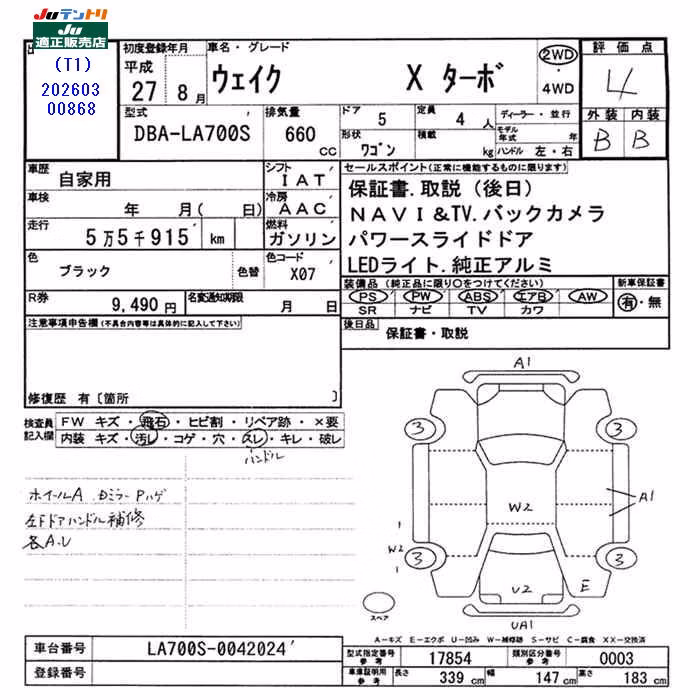 Juテントリ
Ju
適正販売店
(T1)
202603
00868
初度登録年月
平成
27年 8月
車名・グレード
ウェイク X ターボ
2WD
・
4WD
評価点
4
外装 内装
B B
型式
DBA-LA700S
排気量
660 cc
ドア
5
定員
4 人
形状
ワゴン
積載
kg
ディーラー・並行
モデル年式 年
ハンドル 左・右
車歴
自家用
シフト
IAT
車検
年 月( 日)
冷房
AAC
走行
5万5千915 km
燃料
ガソリン
色
ブラック
色替
色コード
X07
R券
9,490 円
名変通知期限
月 日
セールスポイント(正常に機能するものに限ります)
保証書.取説(後日)
NAVI&TV.バックカメラ
パワースライドドア
LEDライト.純正アルミ
装備品(純正品に限り○をつけてください)
PS PW ABS エアB AW
SR ナビ TV カワ
新車保証書
有・無
後日品
保証書・取説
注意事項申告欄(不具合内容等は具体的に記入して下さい)
修復歴 有〔箇所 〕
検査員
記入欄
FW キズ・飛石・ヒビ割・リペア跡・×要
内装 キズ・汚レ・コゲ・穴・スレ・キレ・破レ
ハンドル
ホイールA .ドミラーPハゲ
左Fドアハンドル補修
各A.U
A1
3 3
A1
W2
1
W2
1
3 3
U2
E
UA1
スペア
A−キズ E−エクボ U−凹み W−補修跡 S−サビ C−腐食 XX−交換済
車台番号
LA700S-0042024
登録番号
型式指定番号
参考
17854
類別区分番号
参考
0003
車庫証明用
参考
長さ
339 cm
幅
147 cm
高さ
183 cm